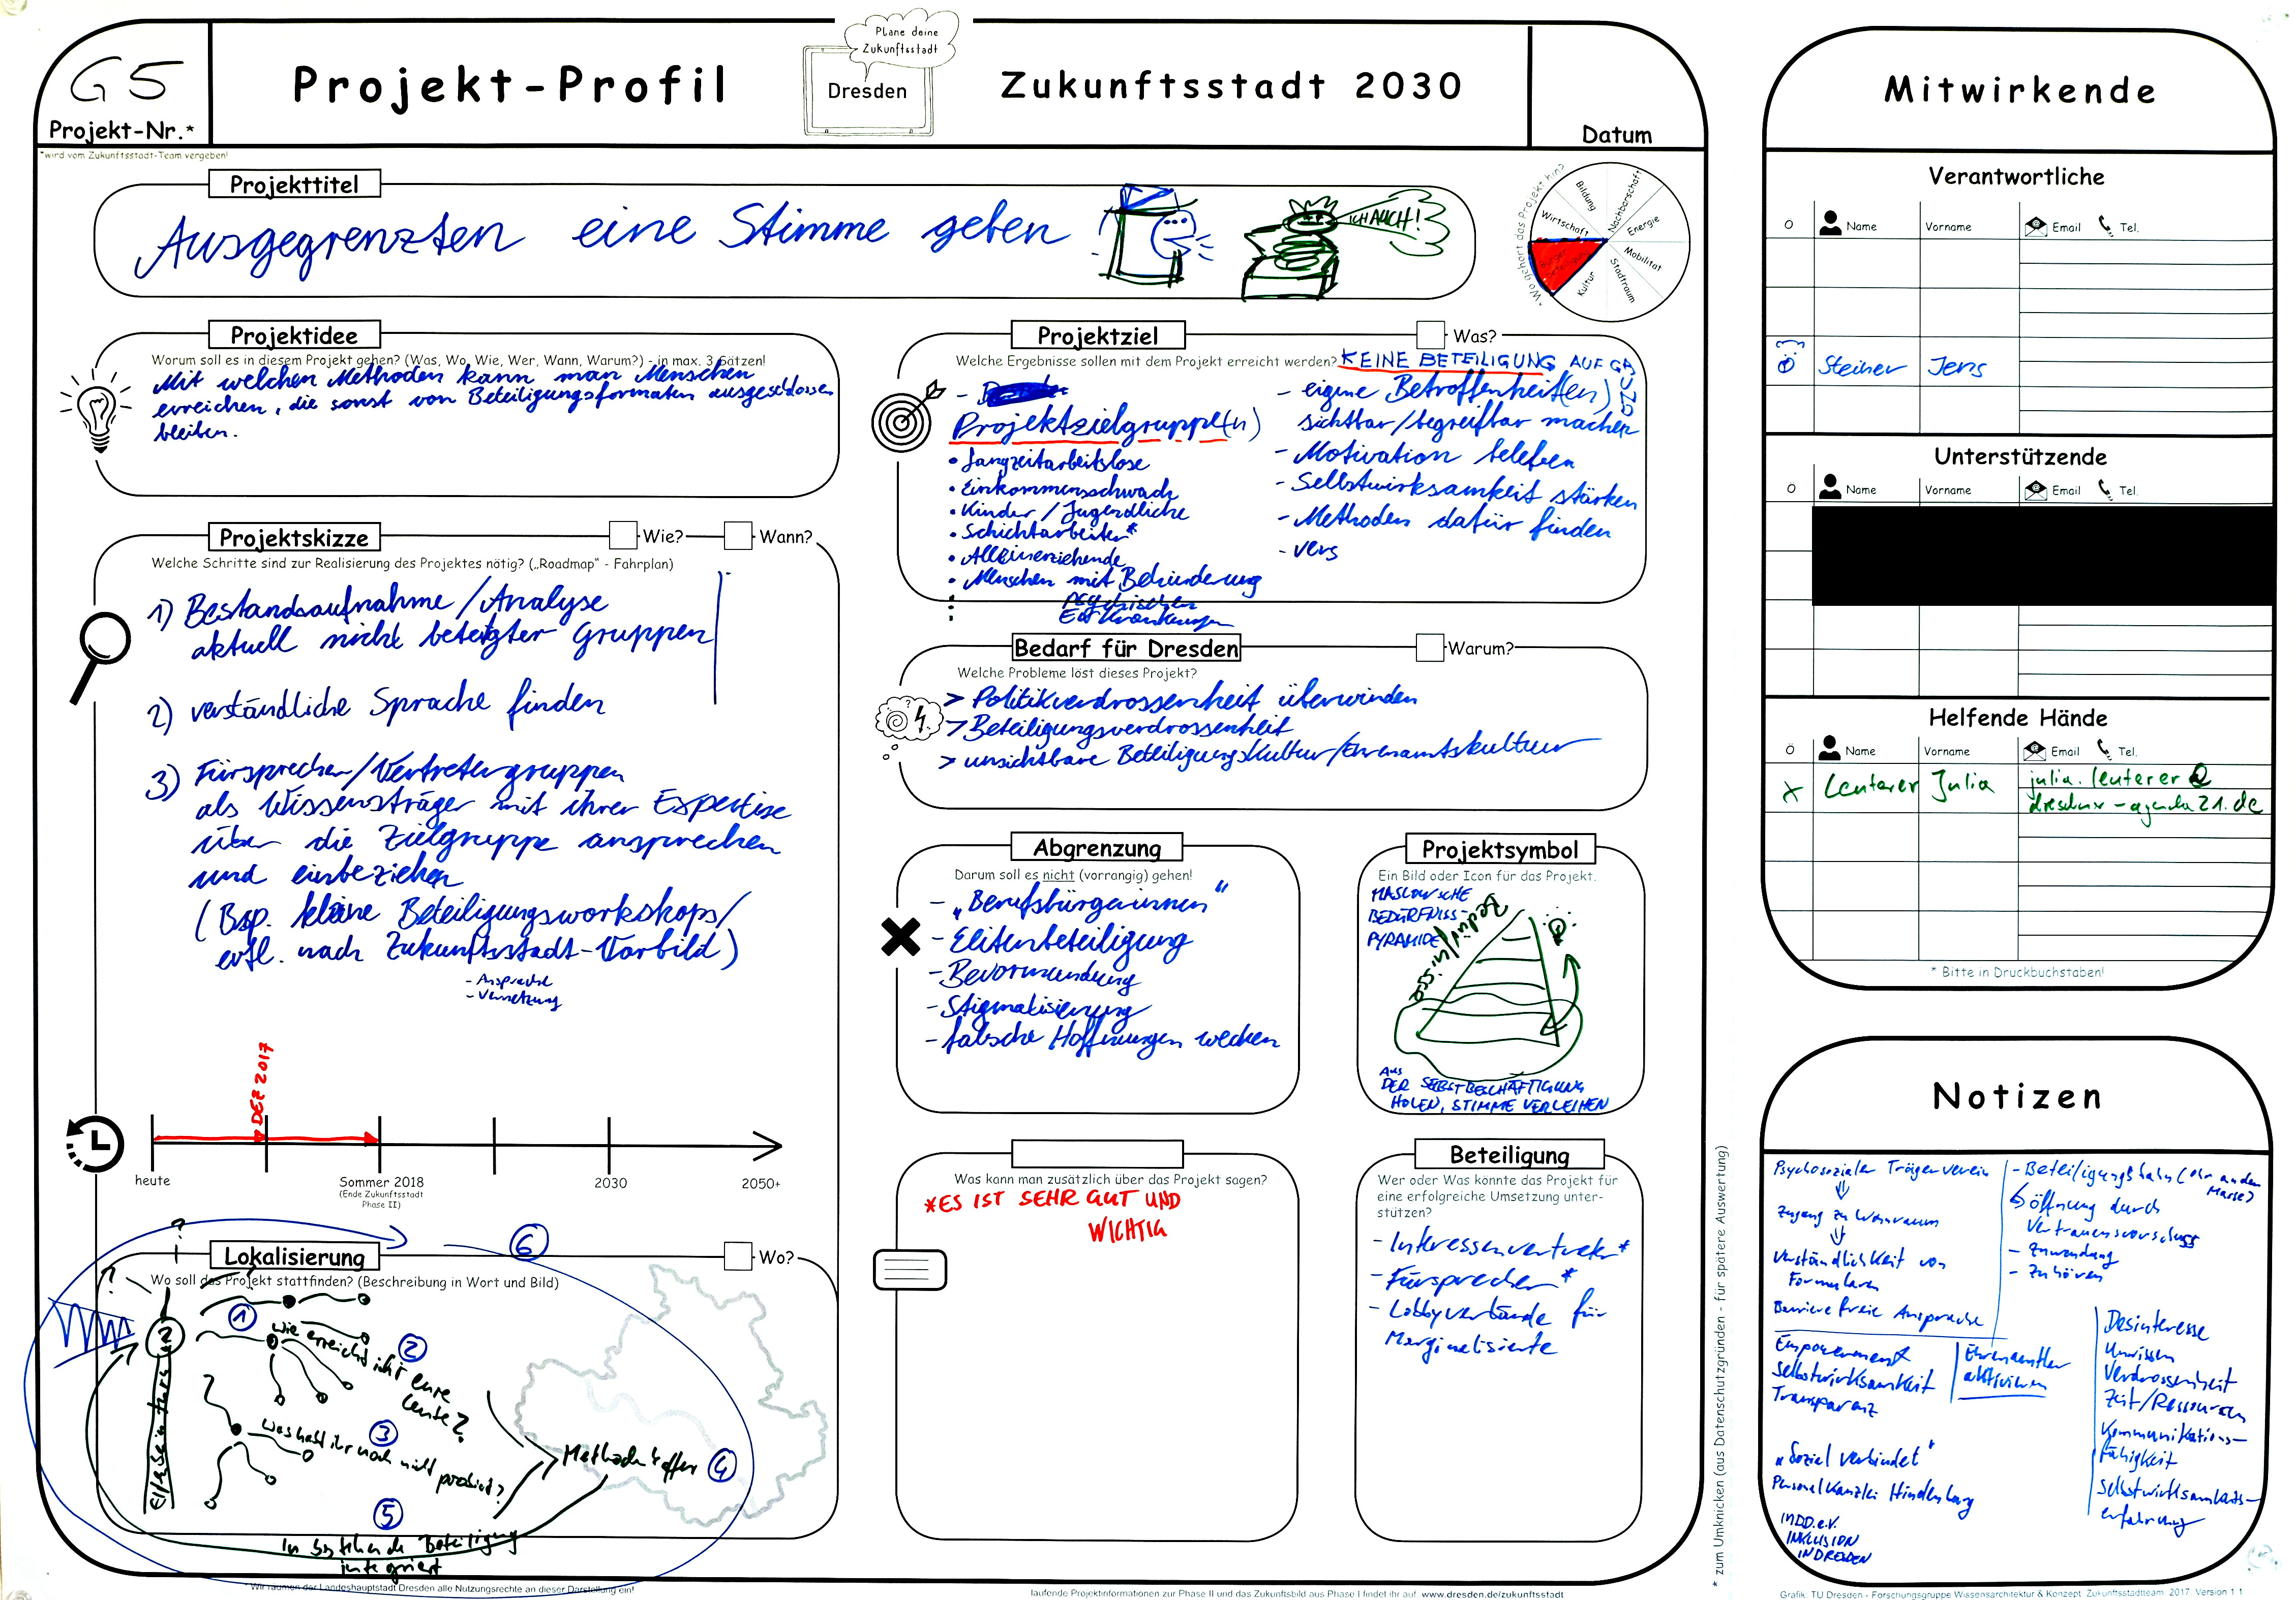 G5
Projekt-Nr.*
*wird vom Zukunftsstadt-Team vergeben!
Projekt-Profil
Plane deine
Zukunftsstadt
Dresden
Zukunftsstadt 2030
Datum
Projekttitel
Ausgegrenzten eine Stimme geben
ICH AUCH!
*Wo gehört das Projekt hin?
Bildung
Nachbarschaft
Wirtschaft
Energie
Mobilität
Stadtraum
Kultur
Projektidee
Worum soll es in diesem Projekt gehen? (Was, Wo, Wie, Wer, Wann, Warum?) - in max. 3 Sätzen!
Mit welchen Methoden kann man Menschen
erreichen, die sonst von Beteiligungsformaten ausgeschlossen
bleiben.
Projektskizze
Wie?
Wann?
Welche Schritte sind zur Realisierung des Projektes nötig? („Roadmap" - Fahrplan)
1) Bestandsaufnahme/Analyse
aktuell nicht beteiligter Gruppen
2) verständliche Sprache finden
3) Fürsprecher/Vertretergruppen
als Wissensträger mit ihrer Expertise
über die Zielgruppe ansprechen
und einbeziehen
(Bsp. kleine Beteiligungsworkshops/
evtl. nach Zukunftsstadt-Vorbild)
- Ansprache
- Vernetzung
DEZ 2017
heute
Sommer 2018
(Ende Zukunftsstadt
Phase II)
2030
2050+
Lokalisierung
Wo?
Wo soll das Projekt stattfinden? (Beschreibung in Wort und Bild)
6
?
?
1
wie erreicht ihr eure
Leute?
2
3
Was habt ihr noch nicht probiert?
4
5
In bestehende Beteiligung
integriert
* Wir räumen der Landeshauptstadt Dresden alle Nutzungsrechte an dieser Darstellung ein!
Projektziel
Was?
Welche Ergebnisse sollen mit dem Projekt erreicht werden?
KEINE BETEILIGUNG AUF
Projektzielgruppe(n)
• Langzeitarbeitslose
• Einkommensschwach
• Kinder / Jugendliche
• Schichtarbeiter*
• Alleinerziehende
• Menschen mit Behinderung
psychischen
Erkrankungen
- eigene Betroffenheit(en)
sichtbar/begreifbar machen
- Motivation beleben
- Selbstwirksamkeit stärken
- Methoden dafür finden
- vers
Bedarf für Dresden
Warum?
Welche Probleme löst dieses Projekt?
> Politikverdrossenheit überwinden
> Beteiligungsverdrossenheit
> unsichtbare Beteiligungskultur/Ehrenamtskultur
Abgrenzung
Darum soll es nicht (vorrangig) gehen!
- „Berufsbürgerinnen"
- Elitenbeteiligung
- Bevormundung
- Stigmatisierung
- falsche Hoffnungen wecken
Projektsymbol
Ein Bild oder Icon für das Projekt.
MASLOW'SCHE
BEDÜRFNISS-
PYRAMIDE
AUS
DER SELBSTBESCHÄFTIGUNG
HOLEN, STIMME VERLEIHEN
Was kann man zusätzlich über das Projekt sagen?
*ES IST SEHR GUT UND
WICHTIG
Beteiligung
Wer oder Was könnte das Projekt für
eine erfolgreiche Umsetzung unter-
stützen?
- Interessenvertreter*
- Fürsprecher*
- Lobbyverbände für
Marginalisierte
laufende Projektinformationen zur Phase II und das Zukunftsbild aus Phase I findet ihr auf: www.dresden.de/zukunftsstadt
* zum Umknicken (aus Datenschutzgründen - für spätere Auswertung)
Mitwirkende
Verantwortliche
Name
Vorname
Email
Tel.
Steiner Jens
Unterstützende
Name
Vorname
Email
Tel.
Helfende Hände
Name
Vorname
Email
Tel.
x Leuterer Julia julia.leuterer@
dresdner-agenda21.de
* Bitte in Druckbuchstaben!
Notizen
Psychosozialer Trägerverein
Zugang zu Wohnraum
Verständlichkeit von
Formularen
Barriere freie Ansprache
Öffnung durch
Vertrauensvorschuss
- Zuwendung
- Zuhören
Empowerment
Selbstwirksamkeit
Transparenz
Ehrenamtler
aktivieren
Desinteresse
Unwissen
Verdrossenheit
Zeit/Ressourcen
Kommunikations-
fähigkeit
Selbstwirksamkeits-
erfahrung
„Sozial verbindet"
Personalkanzlei Hindenburg
INDD.e.V.
INKLUSION
IN DRESDEN
Grafik: TU Dresden - Forschungsgruppe Wissensarchitektur & Konzept: Zukunftsstadtteam 2017. Version 1.1